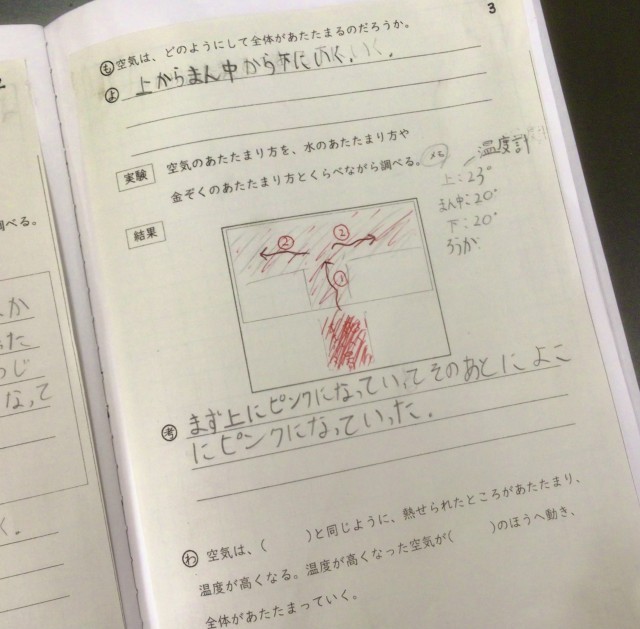 3
も 空気は、どのようにして全体があたたまるのだろうか。
よ 上からまん中から下にいく。いく.
実験 空気のあたたまり方を、水のあたたまり方や
金ぞくのあたたまり方とくらべながら調べる。 メモ
温度計
上:23°
まん中:20°
下:20°
ろうか
結果
② ②
①
考 まず上にピンクになっていってそのあとによこ
にピンクになっていった.
わ 空気は、( )と同じように、熱せられたところがあたたまり、
温度が高くなる。温度が高くなった空気が( )のほうへ動き、
全体があたたまっていく。
調べる。
か
った
つじ
なって
く.